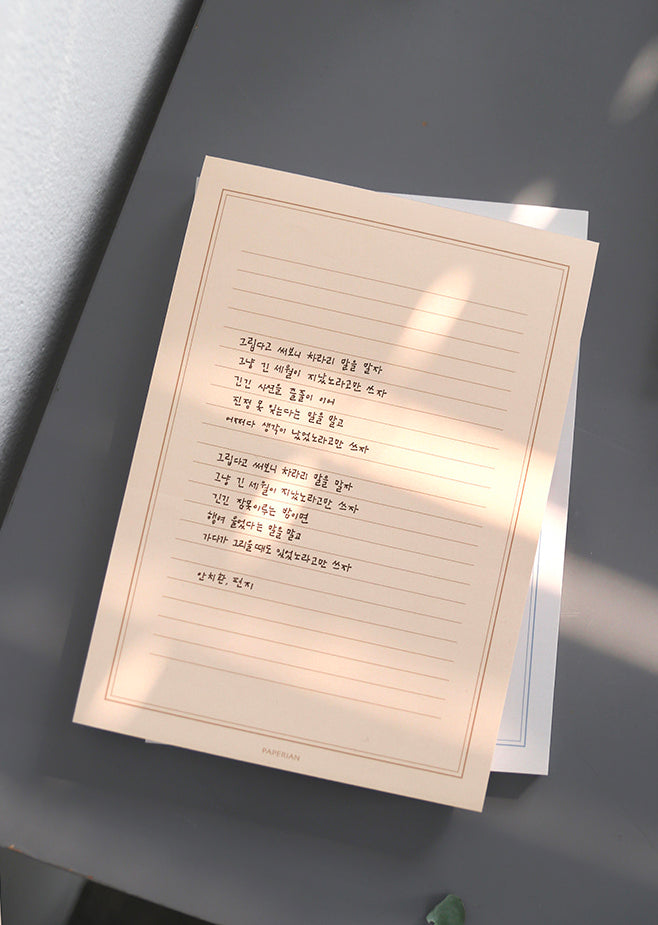 그립다고 써보니 차라리 말을 말자
그냥 긴 세월이 지났노라고만 쓰자
긴긴 사연을 줄줄이 이어
진정 못 잊는다는 말을 말고
어쩌다 생각이 났었노라고만 쓰자
그립다고 써보니 차라리 말을 말자
그냥 긴 세월이 지났노라고만 쓰자
긴긴 잠못이루는 밤이면
행여 울었다는 말을 말고
가다가 그리울때도 있었노라고만 쓰자
안치환, 편지
PAPERIAN